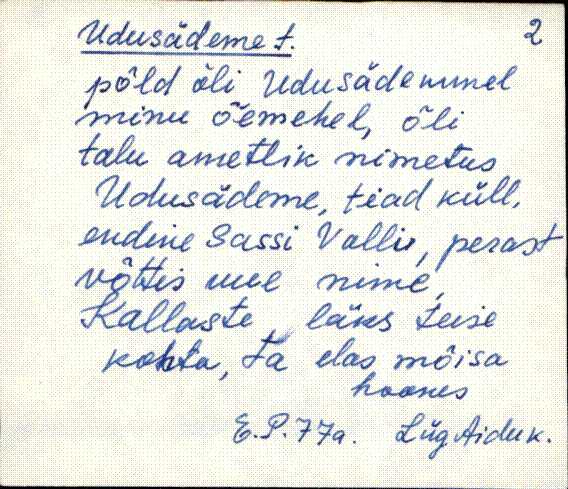 Udusädeme t. 2
põld õli Udusädemmel
minu õemehel, õli
talu ametlik nimetus
Udusädeme, tiad küll.
endine Sassi Valli, perast
võttis uue nime,
Kallaste, läks teise
kohta, ta elas mõisa
hoones
E.P. 77a. Lüg Aidu k.